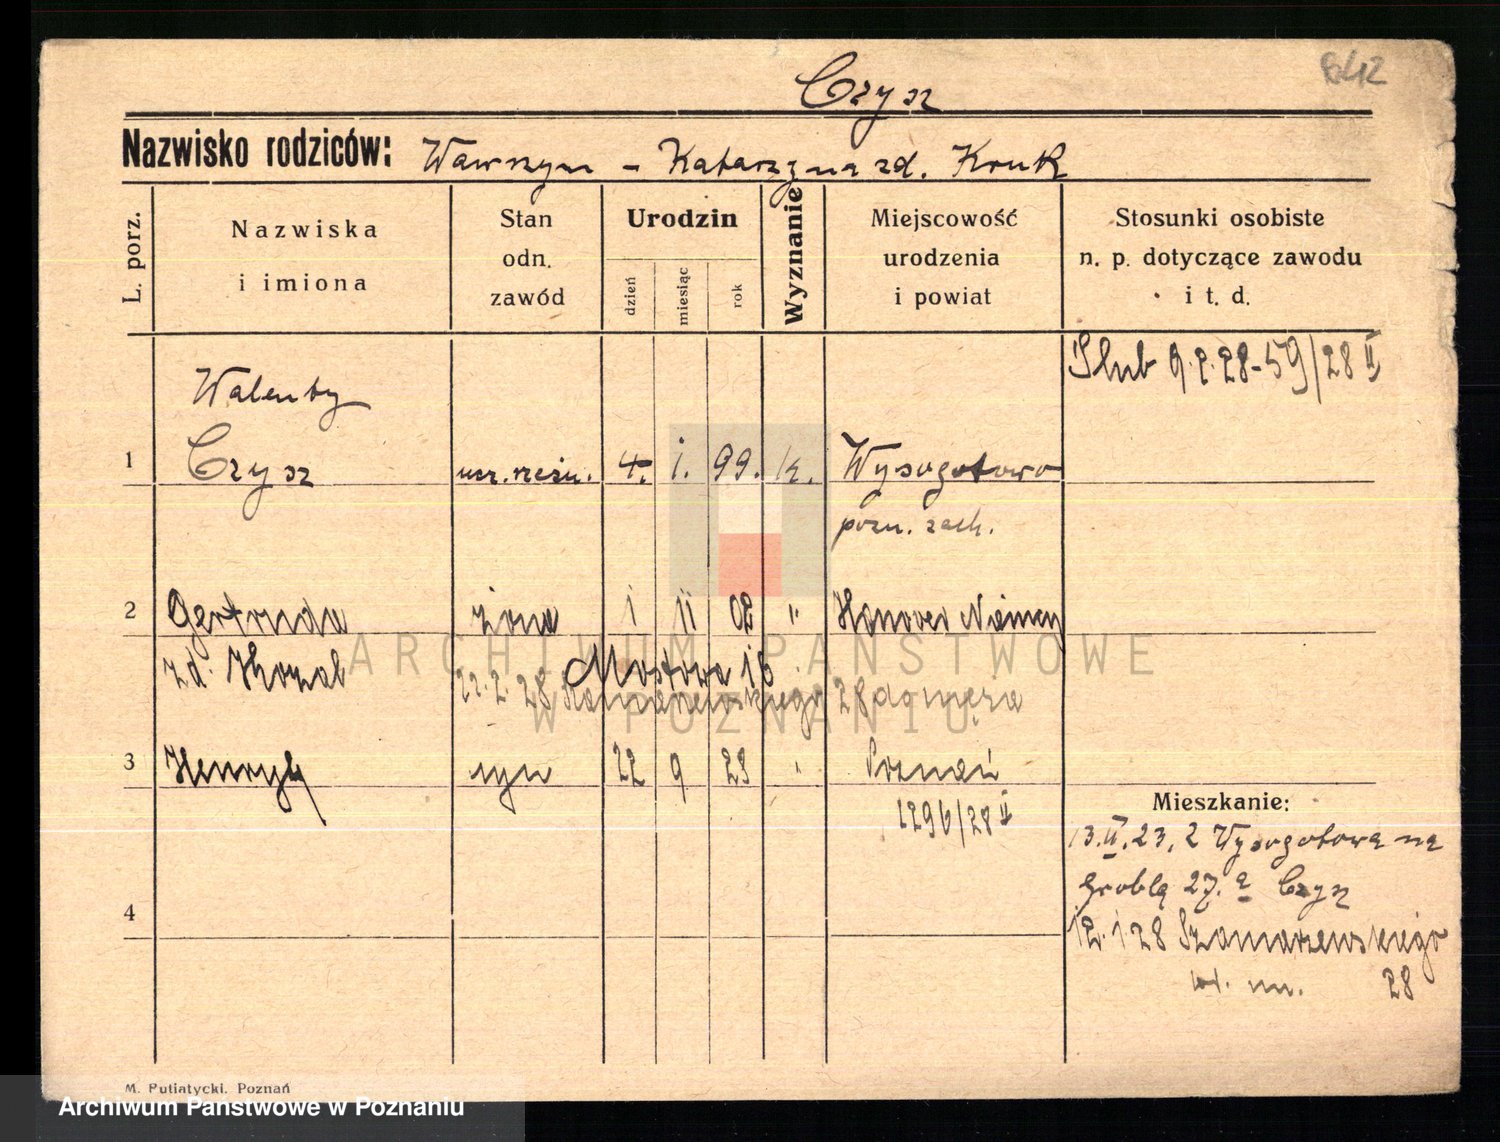 642
Czysz
Nazwisko rodziców: Wawrzyn - Katarzyna zd. Kruk
L. porz.
Nazwiska
i imiona
Stan
odn.
zawód
Urodzin
dzień
miesiąc
rok
Wyznanie
Miejscowość
urodzenia
i powiat
Stosunki osobiste
n. p. dotyczące zawodu
i t. d.
Ślub 9.2.28-59/28 II
Walenty
1 Czysz ucz. rzeźn. 4. 1. 99. k. Wysogotowo
pozn. zach.
2 Gertruda żona 1 11 02 " Hanower Niemcy
zd. Mostowa 16
22.2.28 28
3 Henryk syn 22 9 23 " Poznań
1296/28 II
Mieszkanie:
13.II.23, z Wysogotowa na
Groblą 27. Czysz
12.1.28 Szamarzewskiego
28
4
ARCHIWUM PAŃSTWOWE
W POZNANIU
M. Putiatycki. Poznań
Archiwum Państwowe w Poznaniu